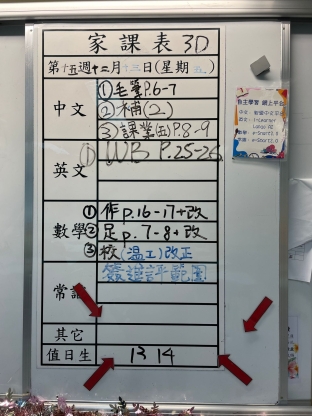 家課表 3D
第十五週十二月十三日(星期五)
中文
①毛筆P.6-7
②補(2)
③課業(五)P.8-9
英文
① WB P.25-26
數學
①作p.16-17+改
②足p.7-8+改
③校(溫工)改正
常識
簽進評範圍
其它
值日生
13 14
自主學習 網上平台